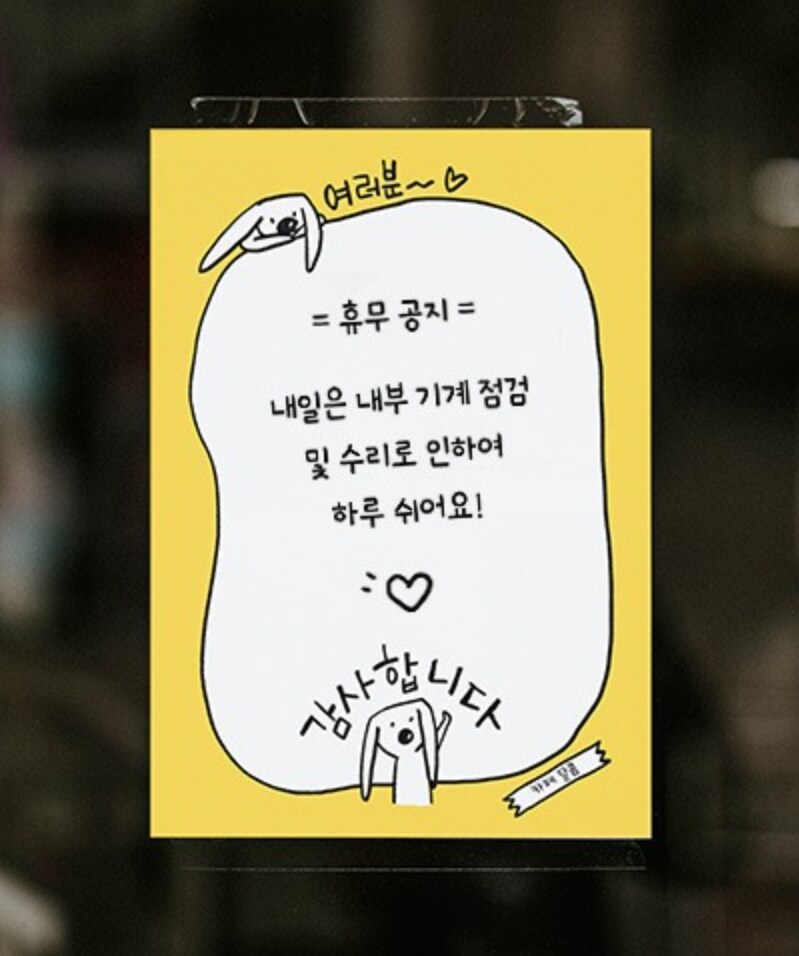 여러분~♡
= 휴무 공지 =
내일은 내부 기계 점검
및 수리로 인하여
하루 쉬어요!
감사합니다
카페 달콤